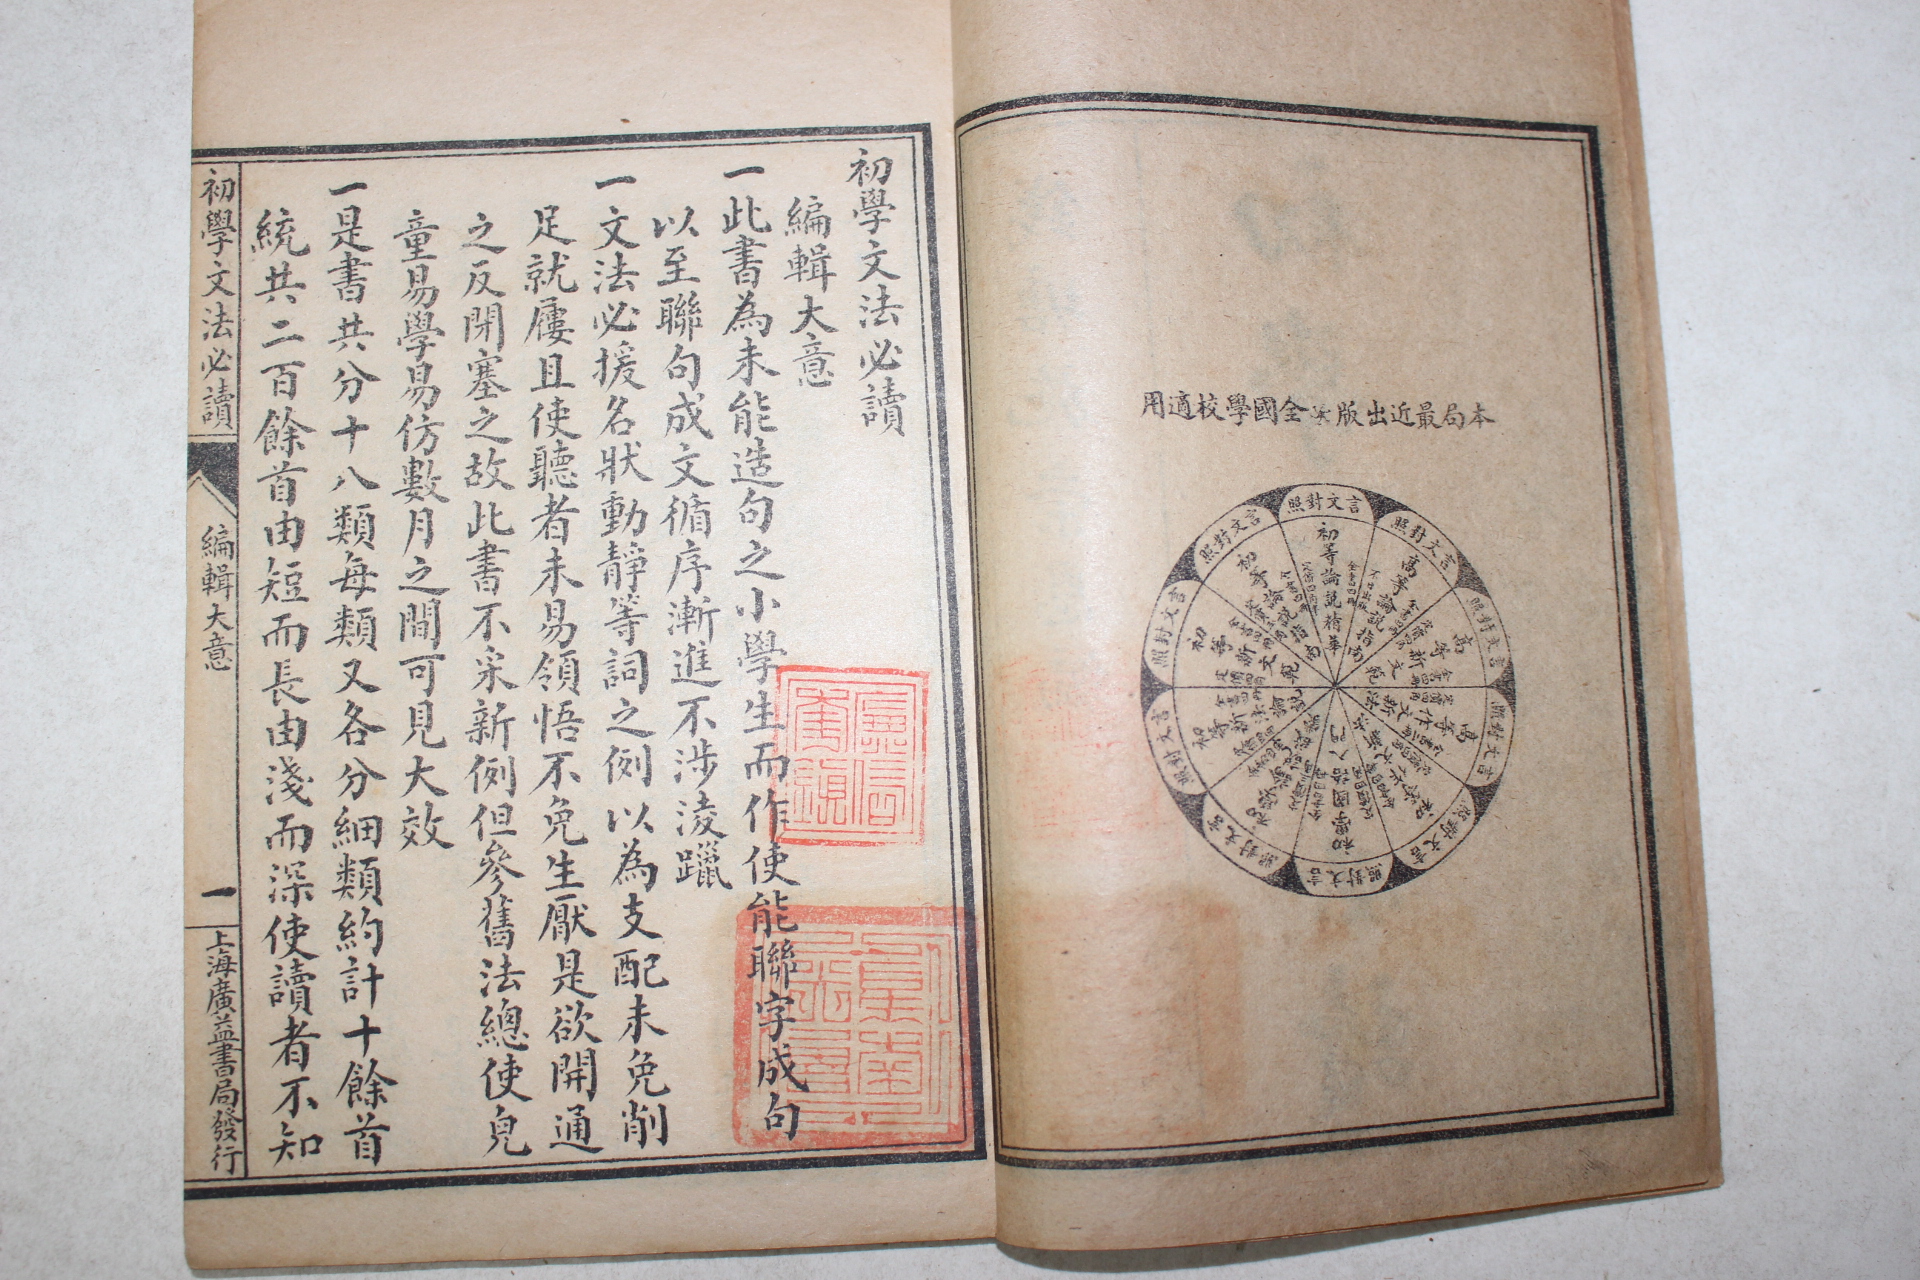 本局最近出版 全國學校適用
言文對照
初等論說精華
言文對照
高等論說指南
言文對照
言文對照
言文對照
言文對照
初學國語入門
言文對照
言文對照
言文對照
言文對照
初學文法必讀
編輯大意
一此書為未能造句之小學生而作使能聯字成句
以至聯句成文循序漸進不涉淩躐
一文法必援名狀動靜等詞之例以為支配未免削
足就屨且使聽者未易領悟不免生厭是欲開通
之反閉塞之故此書不采新例但參舊法總使兒
童易學易仿數月之間可見大效
一是書共分十八類每類又各分細類約計十餘首
統共二百餘首由短而長由淺而深使讀者不知
初學文法必讀 編輯大意 一 上海廣益書局發行